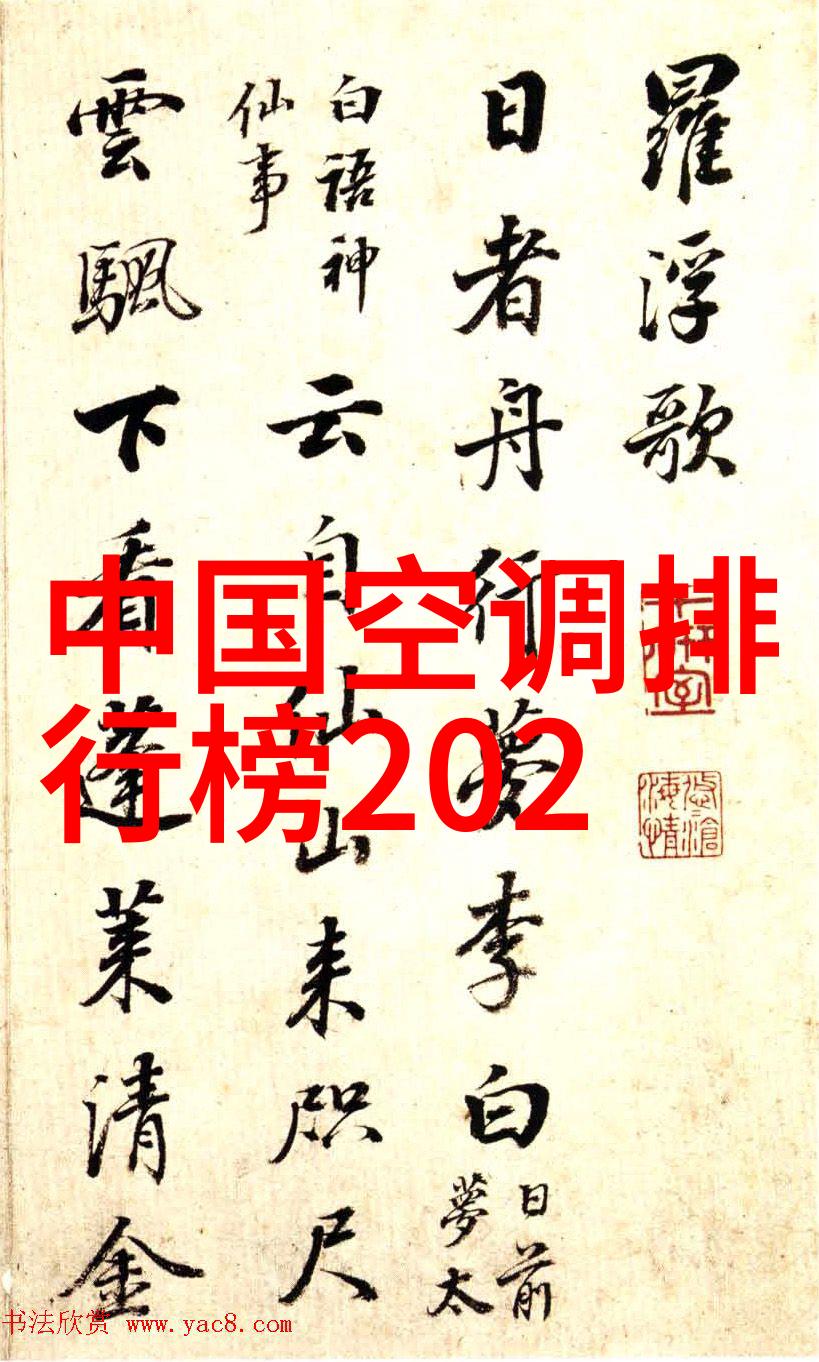 羅浮歌
日者舟行夢李白
日前
夢太
白語神
仙事
云自仙山来咫尺
雲颿下看蓬莱清金
中国空调排
行榜202
书法欣赏 www.yac8.com